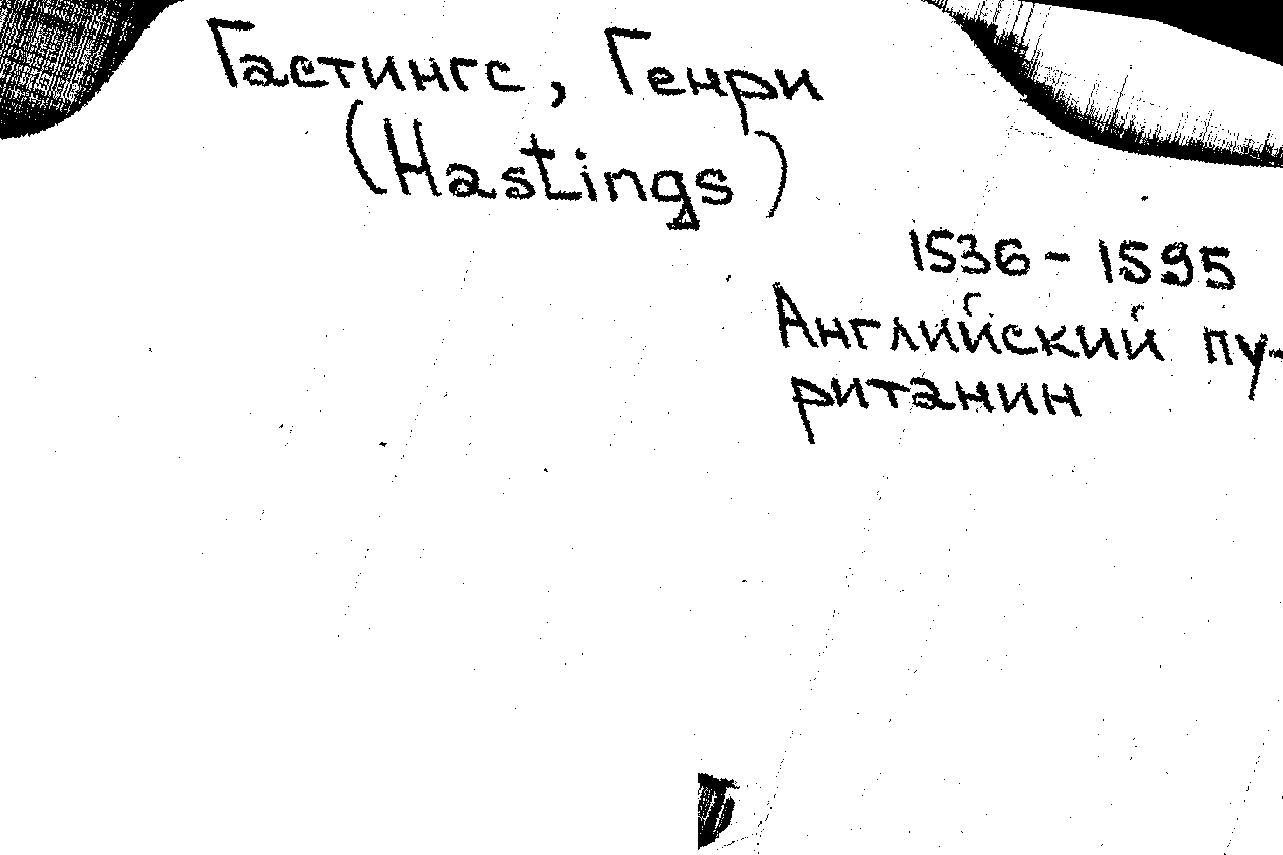 Гастингс, Генри
(Hastings)
1536 - 1595
Английский пу-
ританин